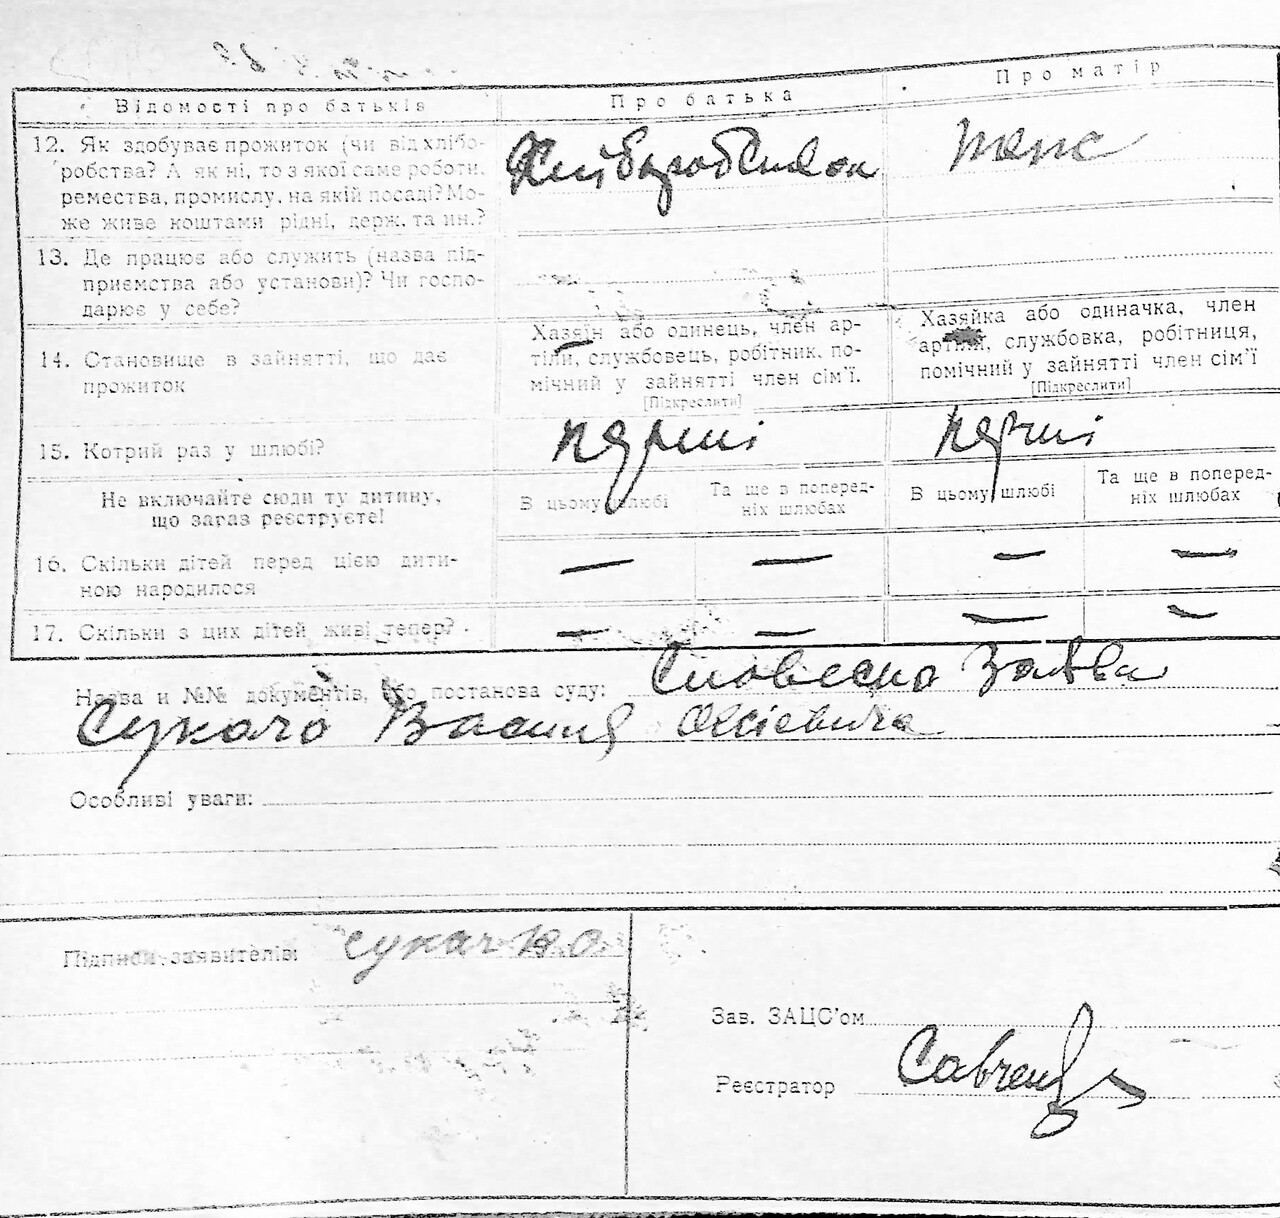 Відомості про батьків
Про батька
Про матір
12. Як здобуває прожиток (чи від хлібо-
робства? А як ні, то з якої саме роботи,
ремества, промислу, на якій посаді? Мо-
же живе коштами рідні, держ. та ин.?
теж
13. Де працює або служить (назва під-
приємства або установи)? Чи госпо-
дарює у себе?
14. Становище в зайнятті, що дає
прожиток
Хазяїн або одинець, член ар-
тіли, службовець, робітник, по-
мічний у зайнятті член сім'ї.
[Підкреслити]
Хазяйка або одиначка, член
артіли, службовка, робітниця,
помічний у зайнятті член сім'ї
[Підкреслити]
15. Котрий раз у шлюбі?
перші
перші
Не включайте сюди ту дитину,
що зараз реєструєте!
В цьому шлюбі
Та ще в поперед-
ніх шлюбах
В цьому шлюбі
Та ще в поперед-
ніх шлюбах
16. Скільки дітей перед цією дити-
ною народилося
— — — —
17. Скільки з цих дітей живі тепер?
— — — —
Назва и №№ документів, або постанова суду: Словесно Заява
Сукача Василя Олсієвича
Особливі уваги:
Підписи заявителів: Сукач В.О.
Зав. ЗАЦС'ом
Реєстратор Савченко